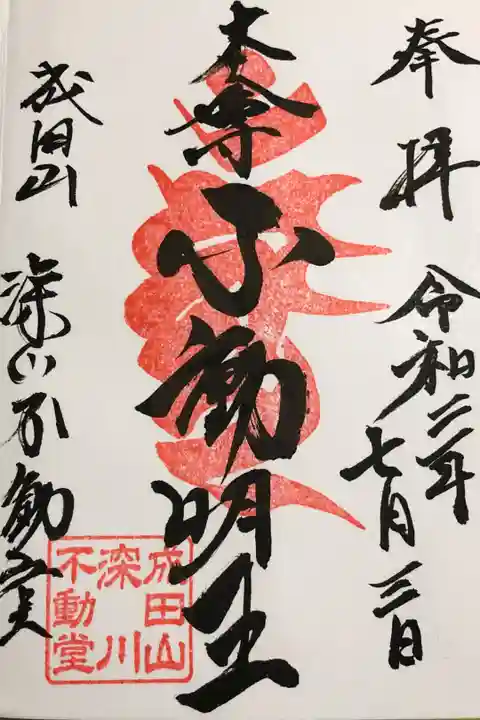 奉拝
令和二年
七月三日
本尊
不動明王
成田山
深川不動堂
成田山
深川
不動堂